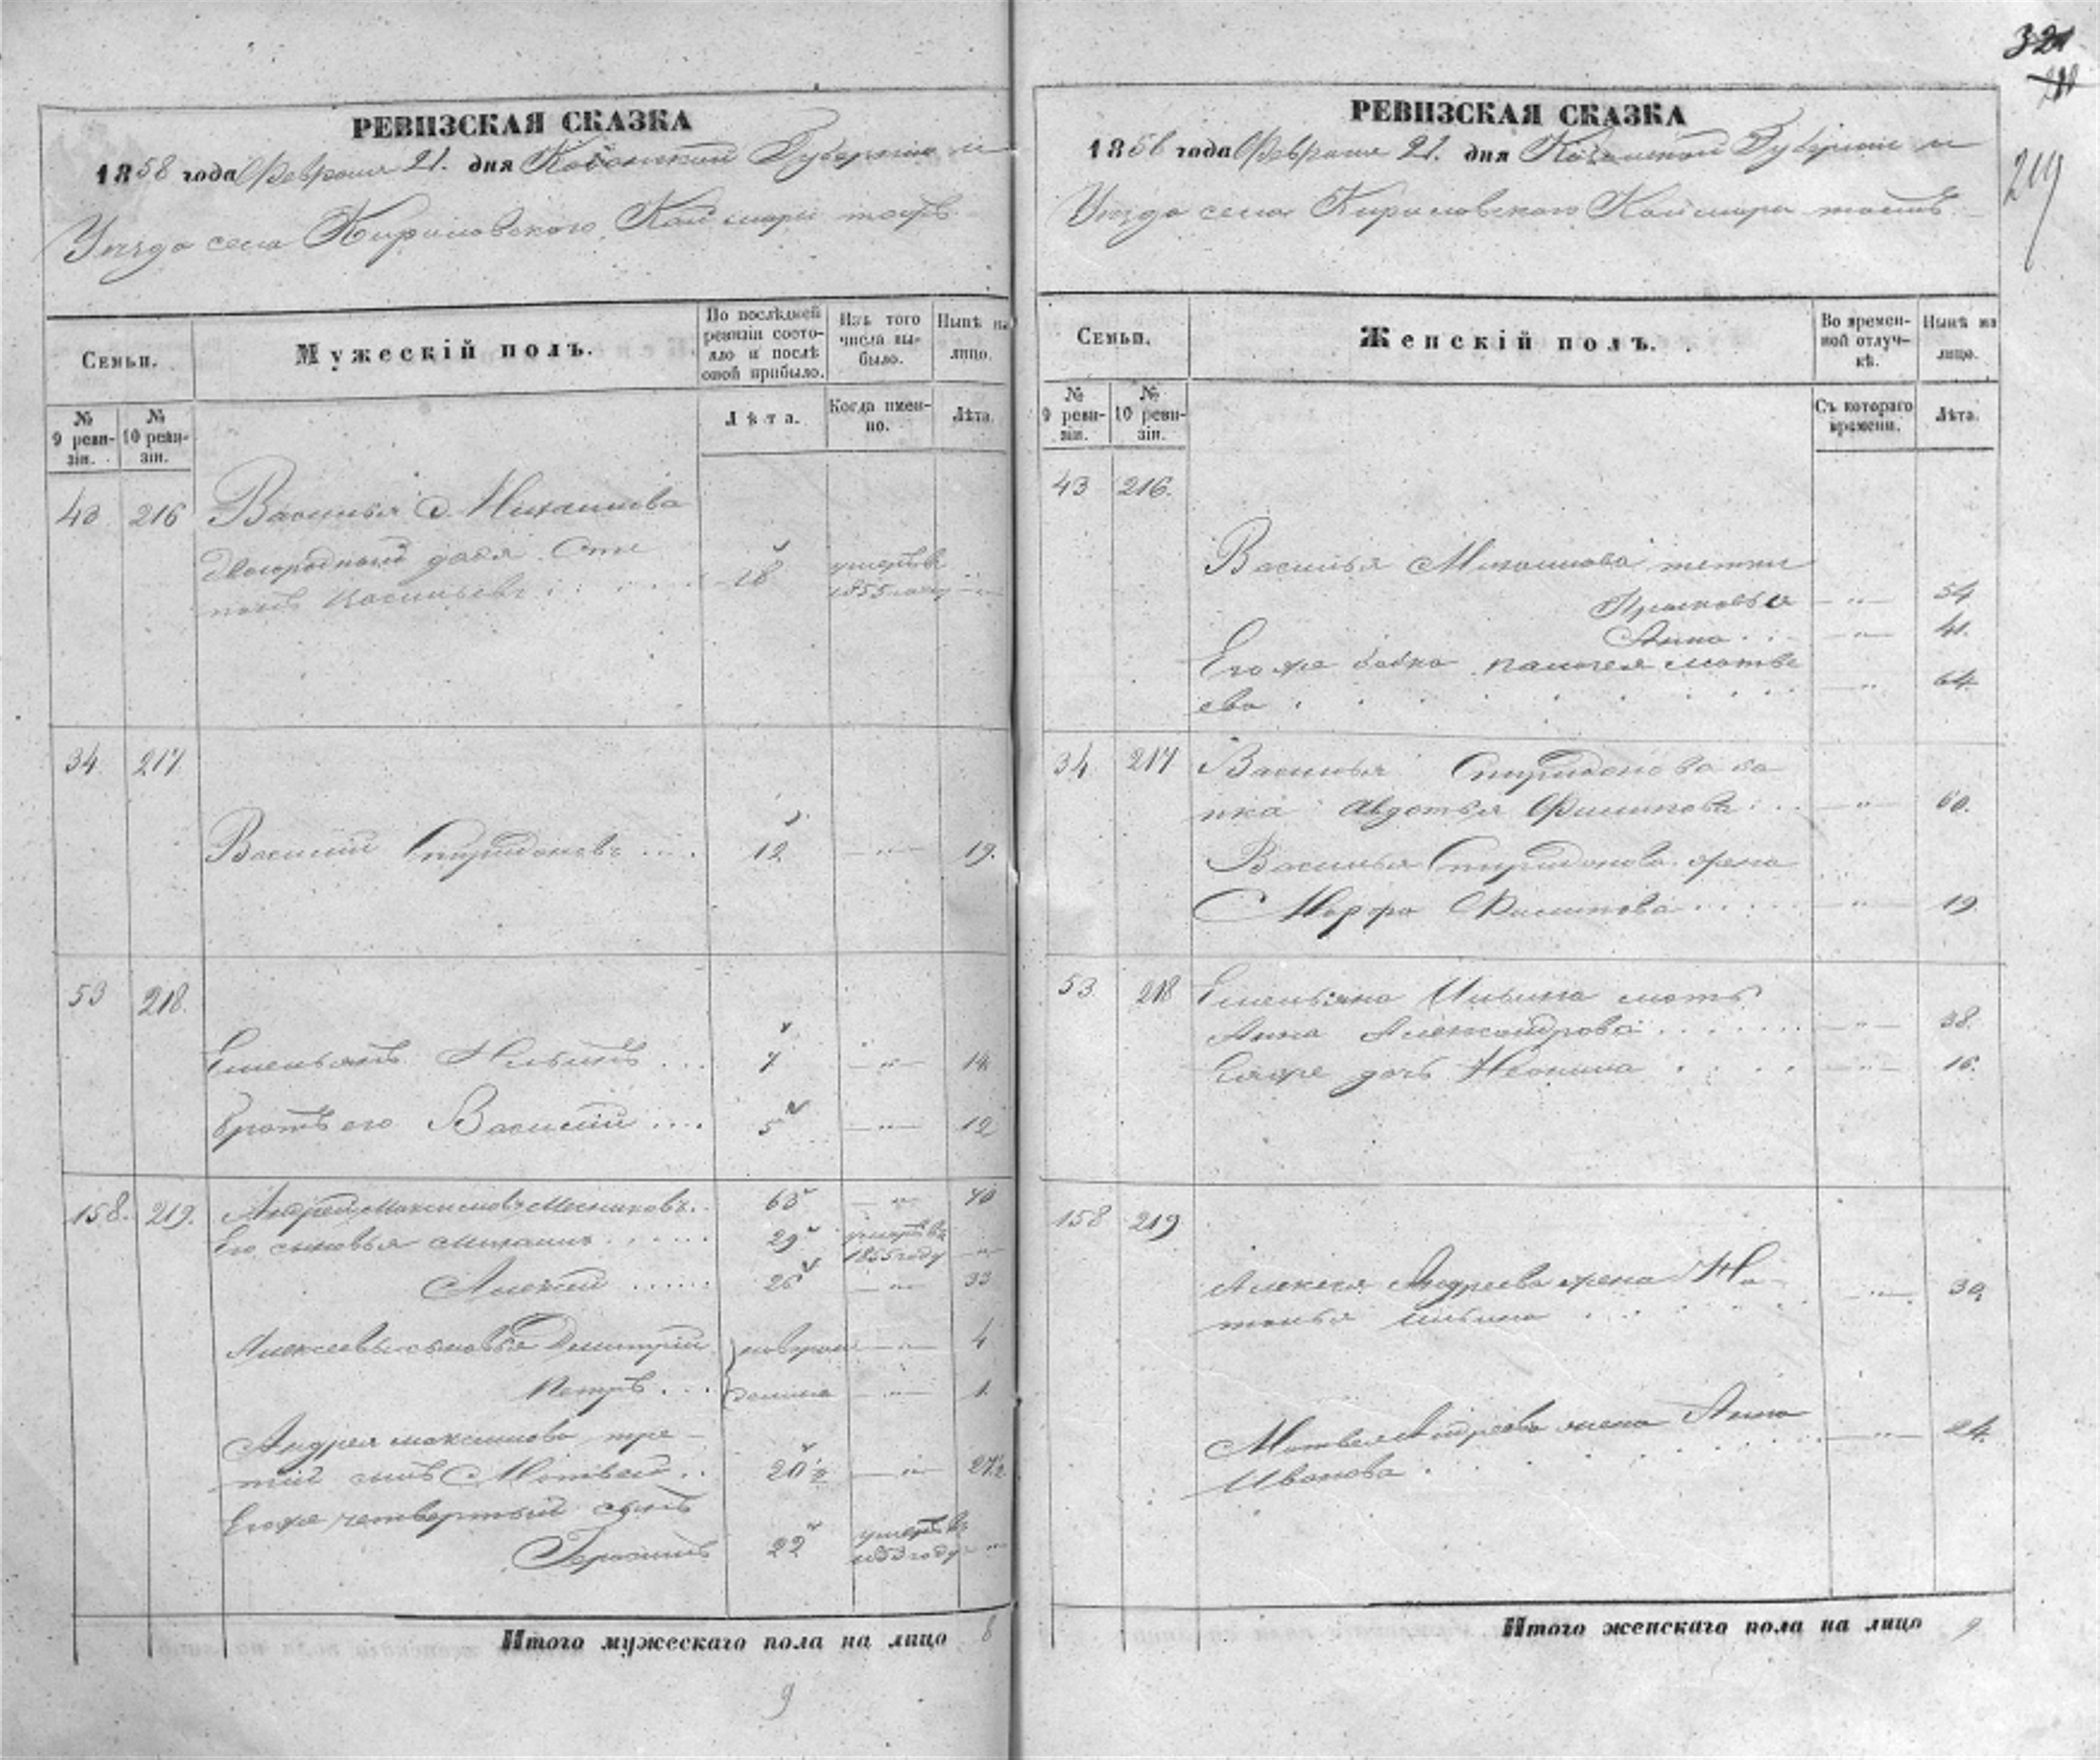 321
219
РЕВИЗСКАЯ СКАЗКА
1858 года Февраля 21. дня Казанской Губерніи и
Уѣзда села Кириловскаго Каймари тожъ
Семьи.
Мужескій полъ.
По послѣдней ревизіи состояло и послѣ оной прибыло.
Изъ того числа выбыло.
Нынѣ на лицо.
№ 9 ревизіи.
№ 10 ревизіи.
Лѣта.
Когда именно.
Лѣта.
43 216 Василья Михаилова
двоюродный дядя Сте
панъ Васильевъ 18 умеръ въ 1855 году
34 217
Василій Спиридоновъ .... 12 —"— 19.
53 218.
Емельянъ Ильинъ ... 7 —"— 14
Братъ его Василій .... 5 —"— 12
158. 219. Андрей Максимовъ Мельниковъ.. 63 —"— 70
Его сыновья Михаилъ ..... 29 умеръ въ 1855 году —"—
Алексѣй ...... 26 —"— 33
Алексѣевы сыновья Дмитрій —"— 4
Петръ ... —"— 1
Андрея Максимова тре-
тій сынъ Матвей .. 20½ —"— 27½
Его же четвертый сынъ
Герасимъ 22 умеръ въ 1853 году —"—
Итого мужескаго пола на лицо 8
9
РЕВИЗСКАЯ СКАЗКА
1858 года Февраля 21. дня Казанской Губерніи и
Уѣзда села Кириловскаго Каймари тожъ
Семьи.
Женскій полъ.
Во временной отлучкѣ.
Нынѣ на лицо.
№ 9 ревизіи.
№ 10 ревизіи.
Съ котораго времени.
Лѣта.
43 216.
Василья Михаилова тетки
Прасковья —"— 54
Анна ... —"— 41.
Его же бабка Матве
ева . —"— 64.
34 217 Василья Спиридонова ба
пка Авдотья Филипова ... —"— 60.
Василья Спиридонова жена
Марфа Филипова ..... —"— 19
53. 218 Емельяна Ильина мать
Анна Александрова ....... —"— 38.
Ея же дочь .... —"— 16.
158 219
Алексея Андреева жена На-
талья Ильина .... —"— 30.
Матвея Андреева жена Анна
Иванова . —"— 24.
Итого женскаго пола на лицо 9